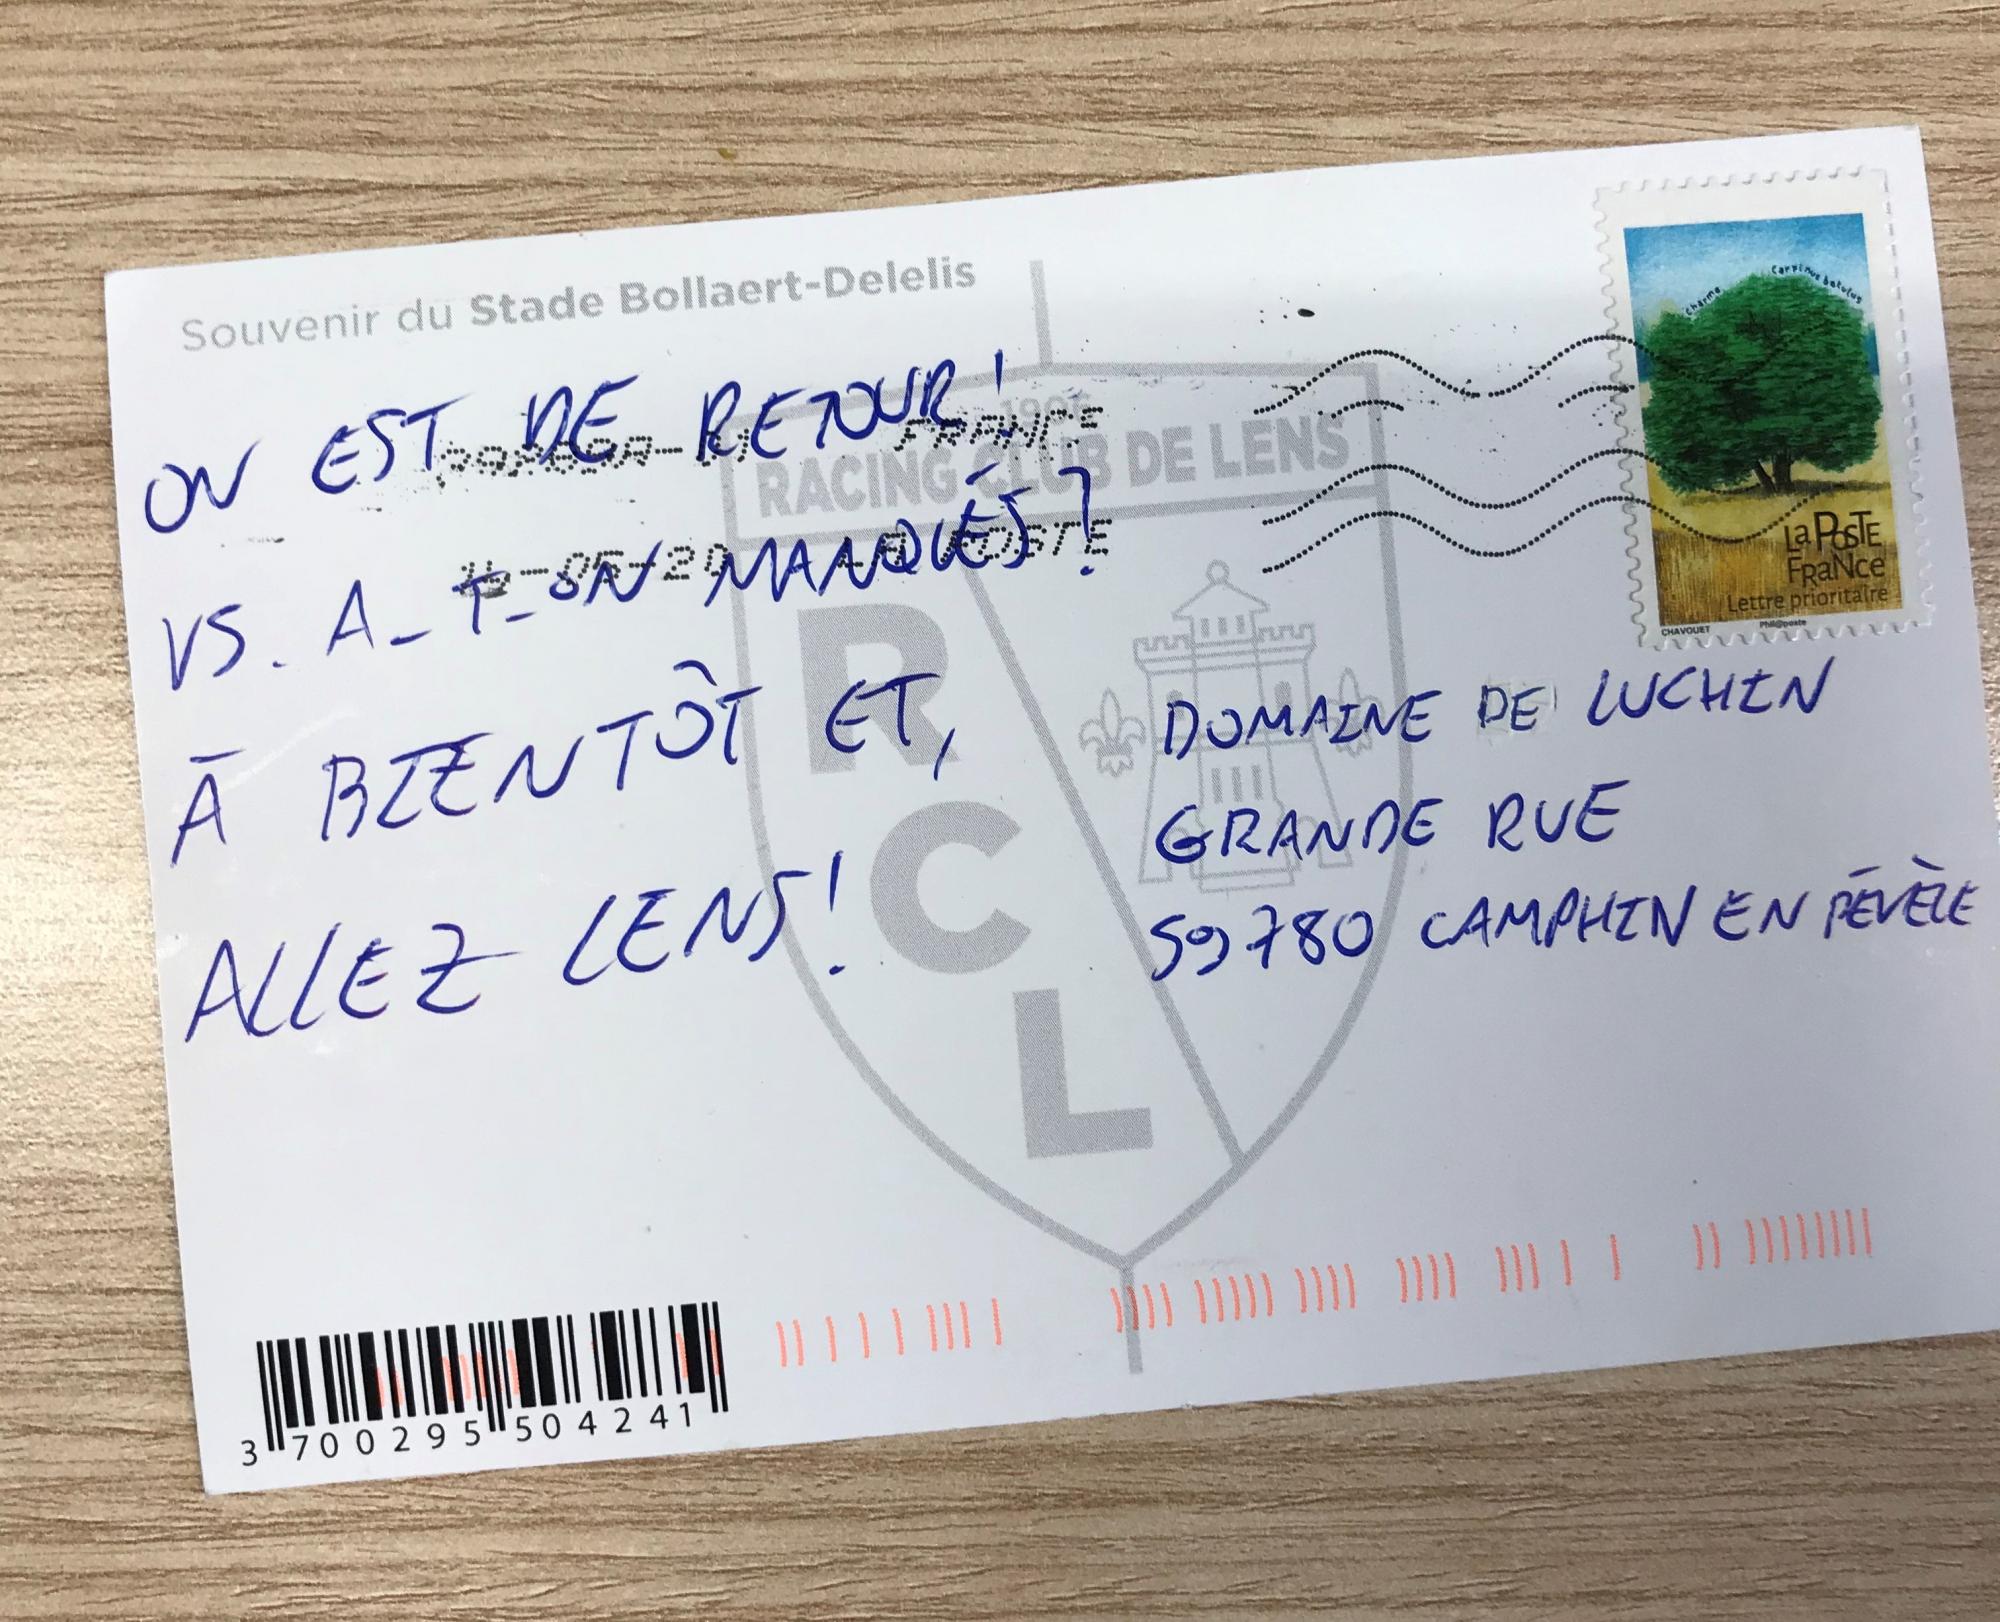 Souvenir du Stade Bollaert-Delelis
ON EST DE RETOUR!
VS. A_T_ON MANQUÉS?
À BIENTÔT ET,
ALLEZ LENS!
FRANCE
-05-20 LA POSTE
RACING CLUB DE LENS
R
C
L
Charme
Carpinus betulus
La Poste
France
Lettre prioritaire
CHAVOUET
Phil@poste
DOMAINE DE LUCHIN
GRANDE RUE
59780 CAMPHIN EN PÉVÈLE
3 700295 504241